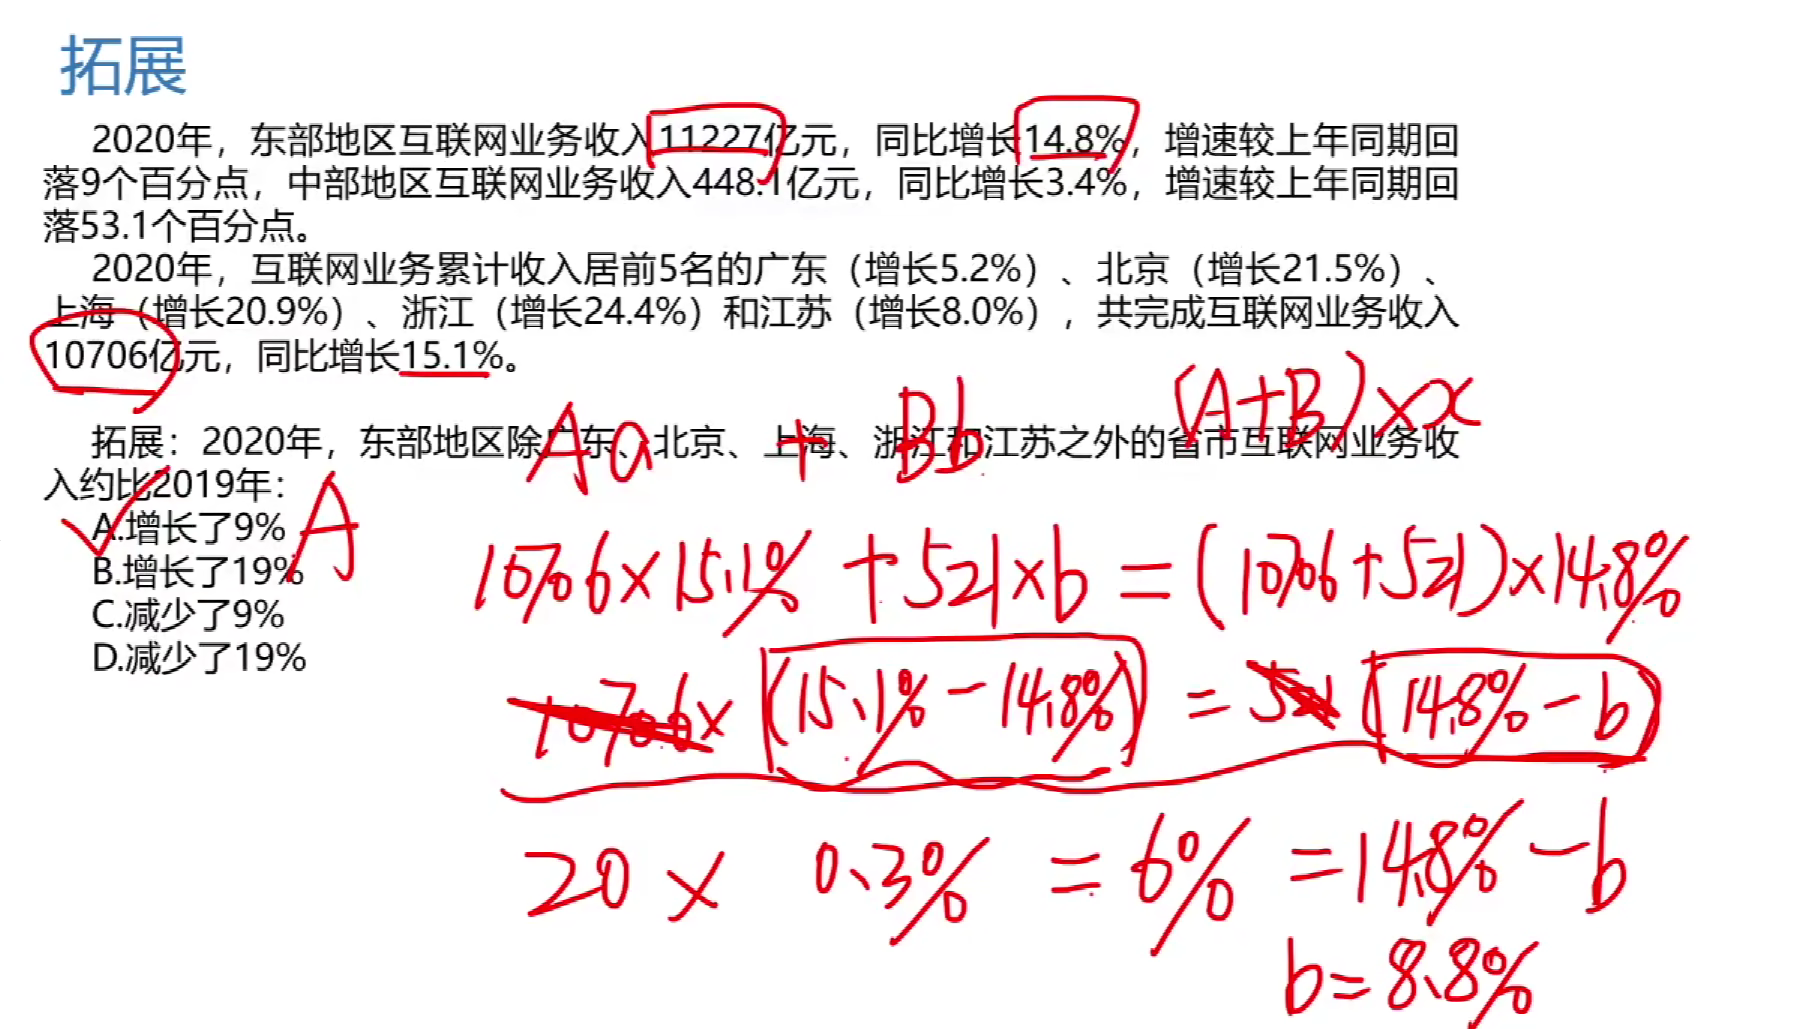 拓展
2020年，东部地区互联网业务收入11227亿元，同比增长14.8%，增速较上年同期回
落9个百分点，中部地区互联网业务收入448.1亿元，同比增长3.4%，增速较上年同期回
落53.1个百分点。
2020年，互联网业务累计收入居前5名的广东（增长5.2%）、北京（增长21.5%）、
上海（增长20.9%）、浙江（增长24.4%）和江苏（增长8.0%），共完成互联网业务收入
10706亿元，同比增长15.1%。
Aa + Bb (A+B)×x
拓展：2020年，东部地区除广东、北京、上海、浙江和江苏之外的省市互联网业务收
入约比2019年：
A.增长了9% A
B.增长了19%
C.减少了9%
D.减少了19%
10706×15.1% + 521×b = (10706+521)×14.8%
10706× (15.1% - 14.8%) = 521 (14.8% - b)
20 × 0.3% = 6% = 14.8% - b
b = 8.8%